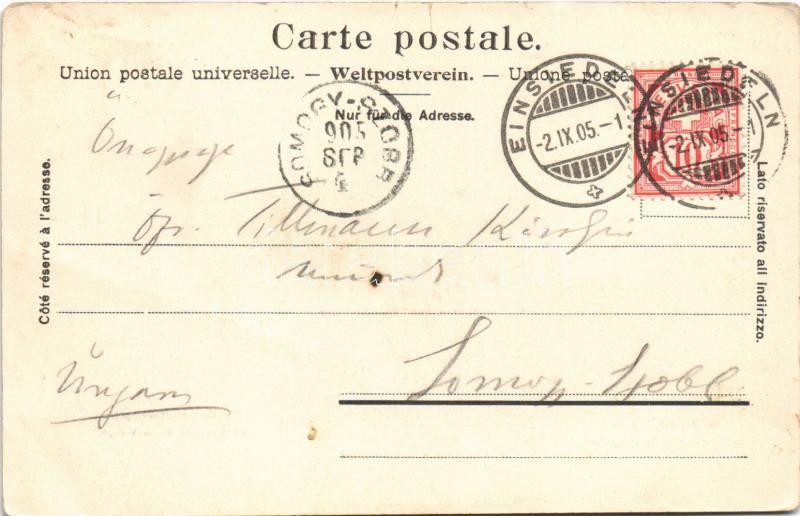 Carte postale.
Union postale universelle. — Weltpostverein. — Unione posta
Nur für die Adresse.
SOMOGY-SZOBB
905
SEP
4
EINSIEDELN
-2.IX.05.-1
EINSIEDELN
-2.IX.05.-1
10
Côté réservé à l'adresse.
Lato riservato all indirizzo.
Özv. Tillmann
Ungarn
Somogy-Szobb